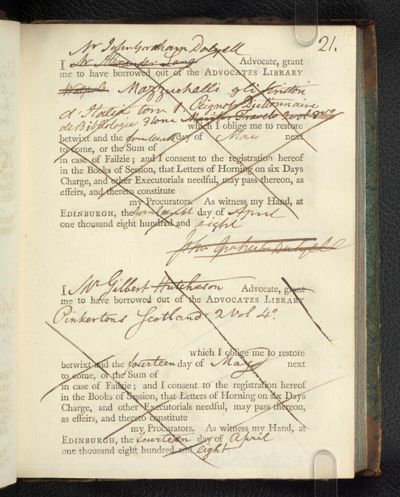 21.
Mr John Graham Dalyell
I Mr Alexander Laing Advocate, grant
me to have borrowed out of the ADVOCATES LIBRARY
Mazzuchelli gli scrittori
d'Italia tom 1 Peignots Dictionnaire
de Bibliologie 3 tom
which I oblige me to restore
betwixt and the fourteenth day of May next
to come, or the Sum of
in case of Failzie; and I consent to the registration hereof
in the Books of Session, that Letters of Horning on six Days
Charge, and other Executorials needful, may pass thereon, as
effeirs, and thereto constitute
my Procurators. As witness my Hand, at
EDINBURGH, the day of April
one thousand eight hundred and eight
John Graham Dalyell
I Mr Gilbert Hutcheson Advocate, grant
me to have borrowed out of the ADVOCATES LIBRARY
Pinkertons Scotland 2 Vol 4o.
which I oblige me to restore
betwixt and the fourteen day of May next
to come, or the Sum of
in case of Failzie; and I consent to the registration hereof
in the Books of Session, that Letters of Horning on six Days
Charge, and other Executorials needful, may pass thereon,
as effeirs, and thereto constitute
my Procurators. As witness my Hand, at
EDINBURGH, the fourteen day of April
one thousand eight hundred and eight